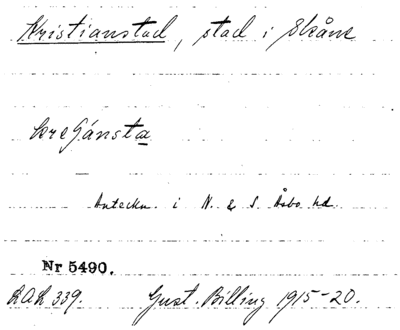 Kristianstad, stad i Skåne
kregánsta
Anteckn. i N. & S. Åsbo hd.
Nr 5490.
LAL 339. Gust. Billing 1915-20.